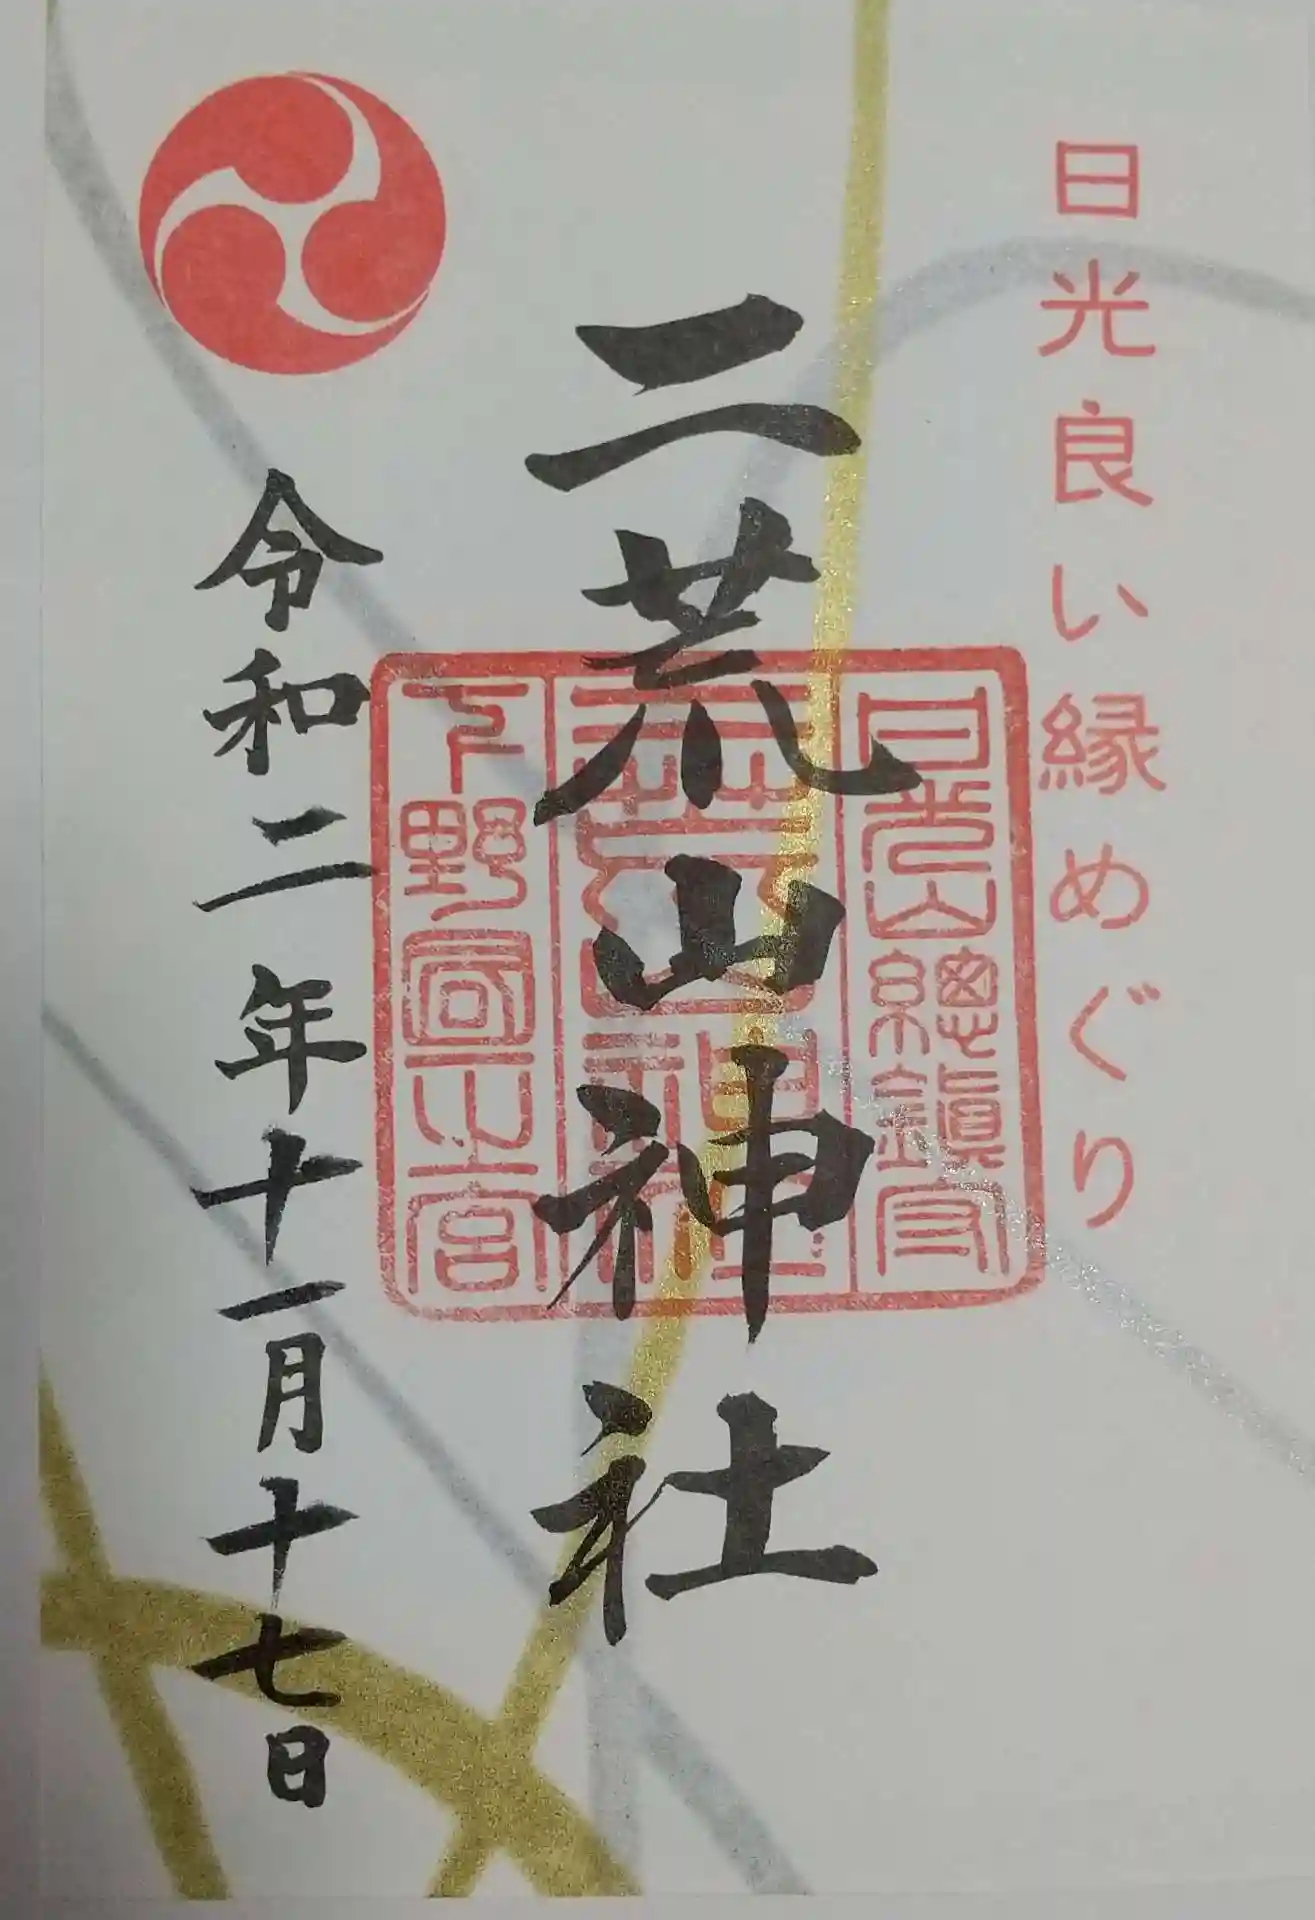 日光良い縁めぐり
日光山総鎮守
二荒山神社
下野国一之宮
令和二年十一月十七日